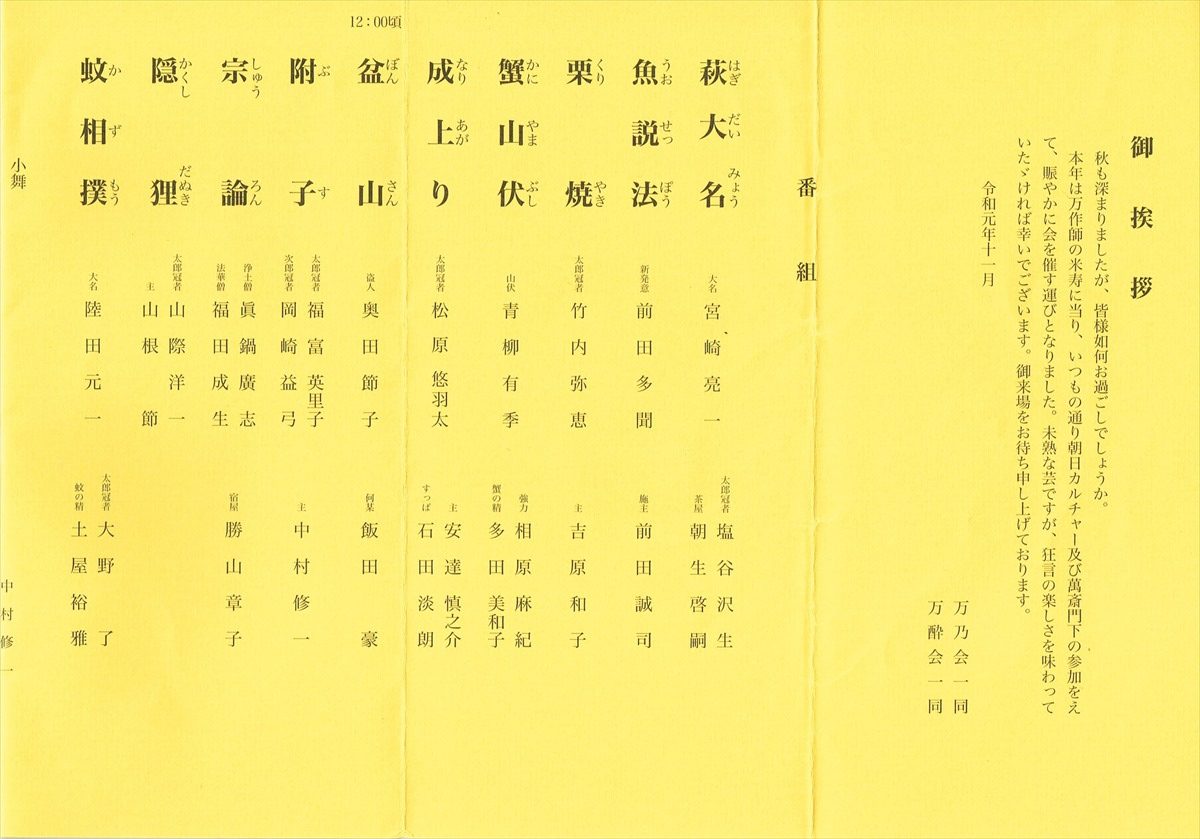 御挨拶
秋も深まりましたが、皆様如何お過ごしでしょうか。
本年は万作師の米寿に当り、いつもの通り朝日カルチャー及び萬斎門下の参加をえ
て、賑やかに会を催す運びとなりました。未熟な芸ですが、狂言の楽しさを味わって
いたゞければ幸いでございます。御来場をお待ち申し上げております。
令和元年十一月
万乃会一同
万酔会一同
番組
萩大名
はぎだいみょう
大名 宮崎亮一
太郎冠者 塩谷沢生
茶屋 朝生啓嗣
魚説法
うおせっぽう
新発意 前田多聞
施主 前田誠司
栗焼
くりやき
太郎冠者 竹内弥恵
主 吉原和子
蟹山伏
かにやまぶし
山伏 青柳有季
強力 相原麻紀
蟹の精 多田美和子
成上り
なりあがり
太郎冠者 松原悠羽太
主 安達慎之介
すっぱ 石田淡朗
12:00頃
盆山
ぼんさん
盗人 奥田節子
何某 飯田豪
附子
ぶす
太郎冠者 福富英里子
次郎冠者 岡崎益弓
主 中村修一
宗論
しゅうろん
浄土僧 眞鍋廣志
法華僧 福田成生
宿屋 勝山章子
隠狸
かくしだぬき
太郎冠者 山際洋一
主 山根節
蚊相撲
かずもう
大名 陸田元一
太郎冠者 大野了
蚊の精 土屋裕雅
小舞
中村修一